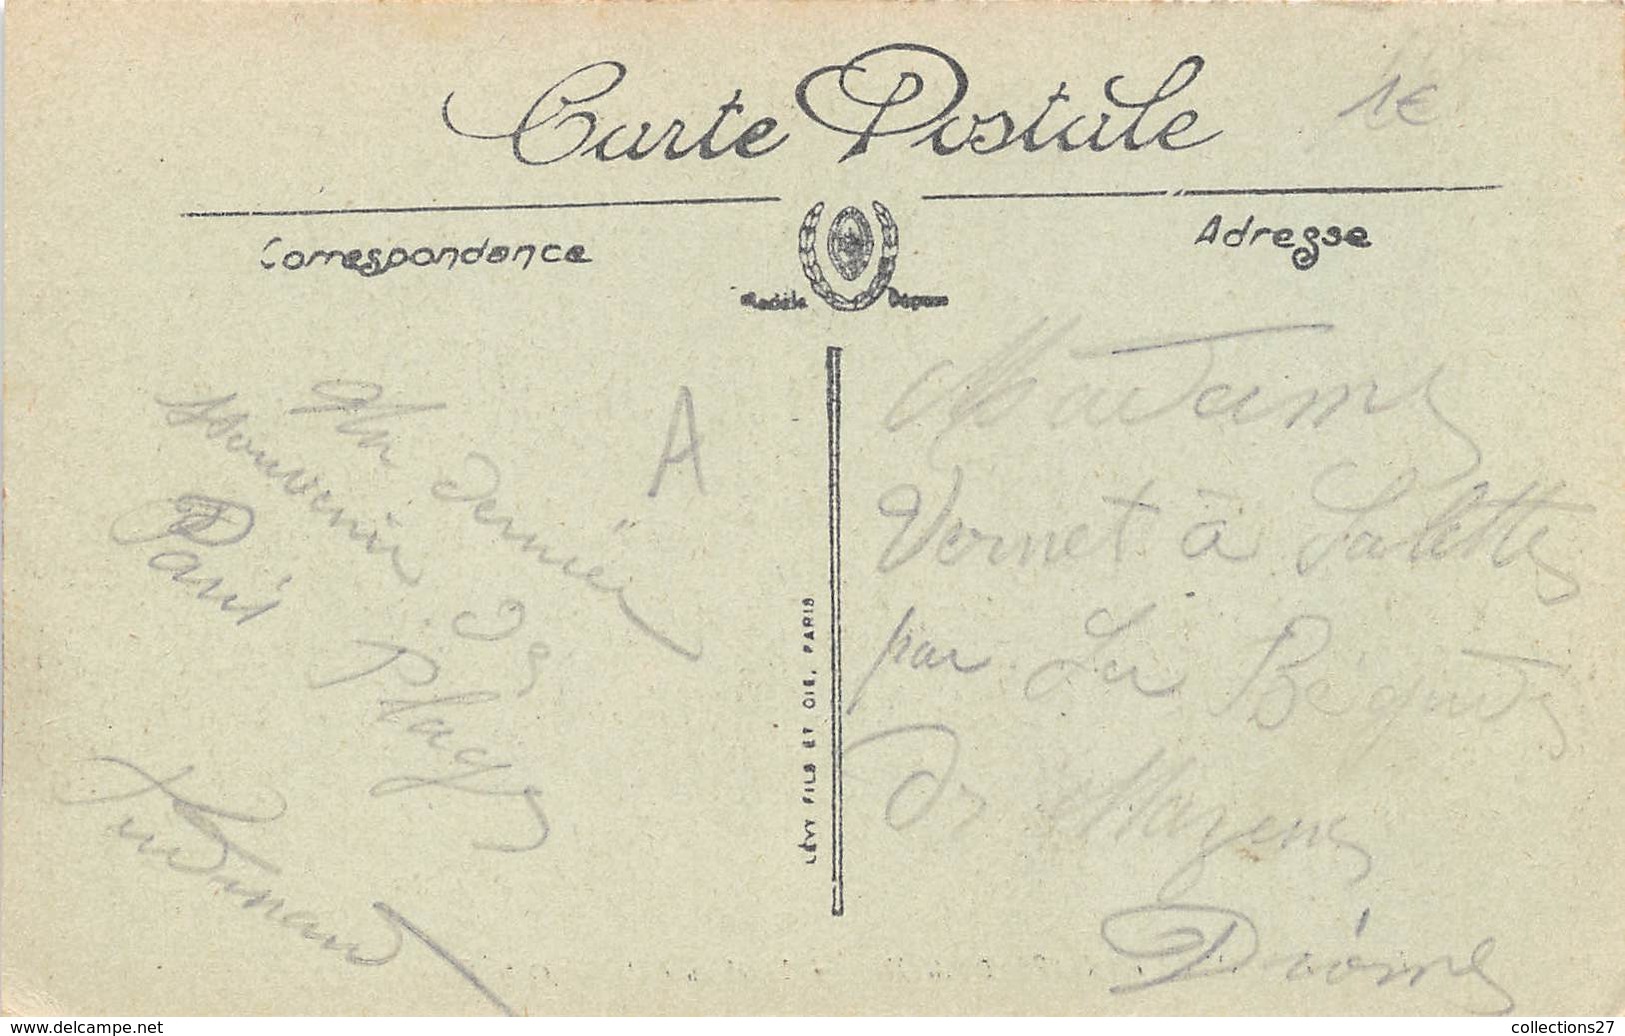 Carte Postale
1€
Correspondance
Adresse
Modèle Déposé
Un dernier
Souvenir de
Paris Plage
A
LÉVY FILS ET CIE, PARIS
Madame
Vernet à Salette
par La Bégude
de Mazenc
Drôme
www.delcampe.net
collections27